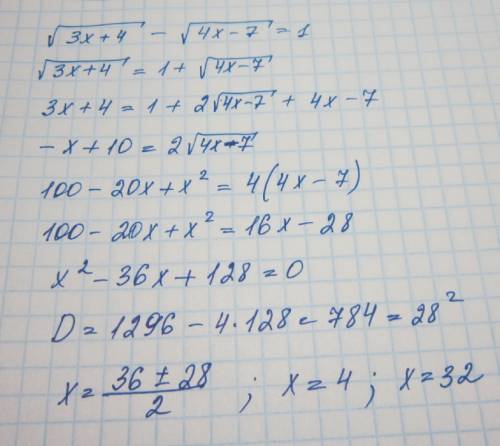 √(3x+4) - √(4x-7) = 1
√(3x+4) = 1 + √(4x-7)
3x+4 = 1 + 2√(4x-7) + 4x-7
-x+10 = 2√(4x-7)
100-20x+x² = 4(4x-7)
100-20x+x² = 16x-28
x²-36x+128=0
D=1296-4·128=784=28²
x=(36±28)/2 ; x=4; x=32